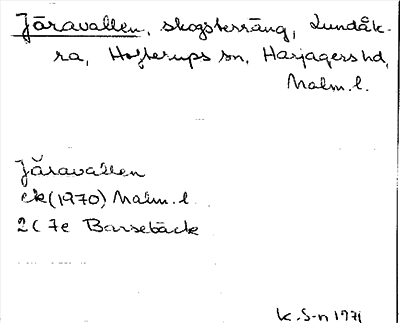 Järavallen, skogsterräng, Lundåk-
ra, Hofterups sn, Harjagers hd,
Malm.l.
Järavallen
ek(1970) Malm.l.
2C 7e Barsebäck
K.S-n 1971